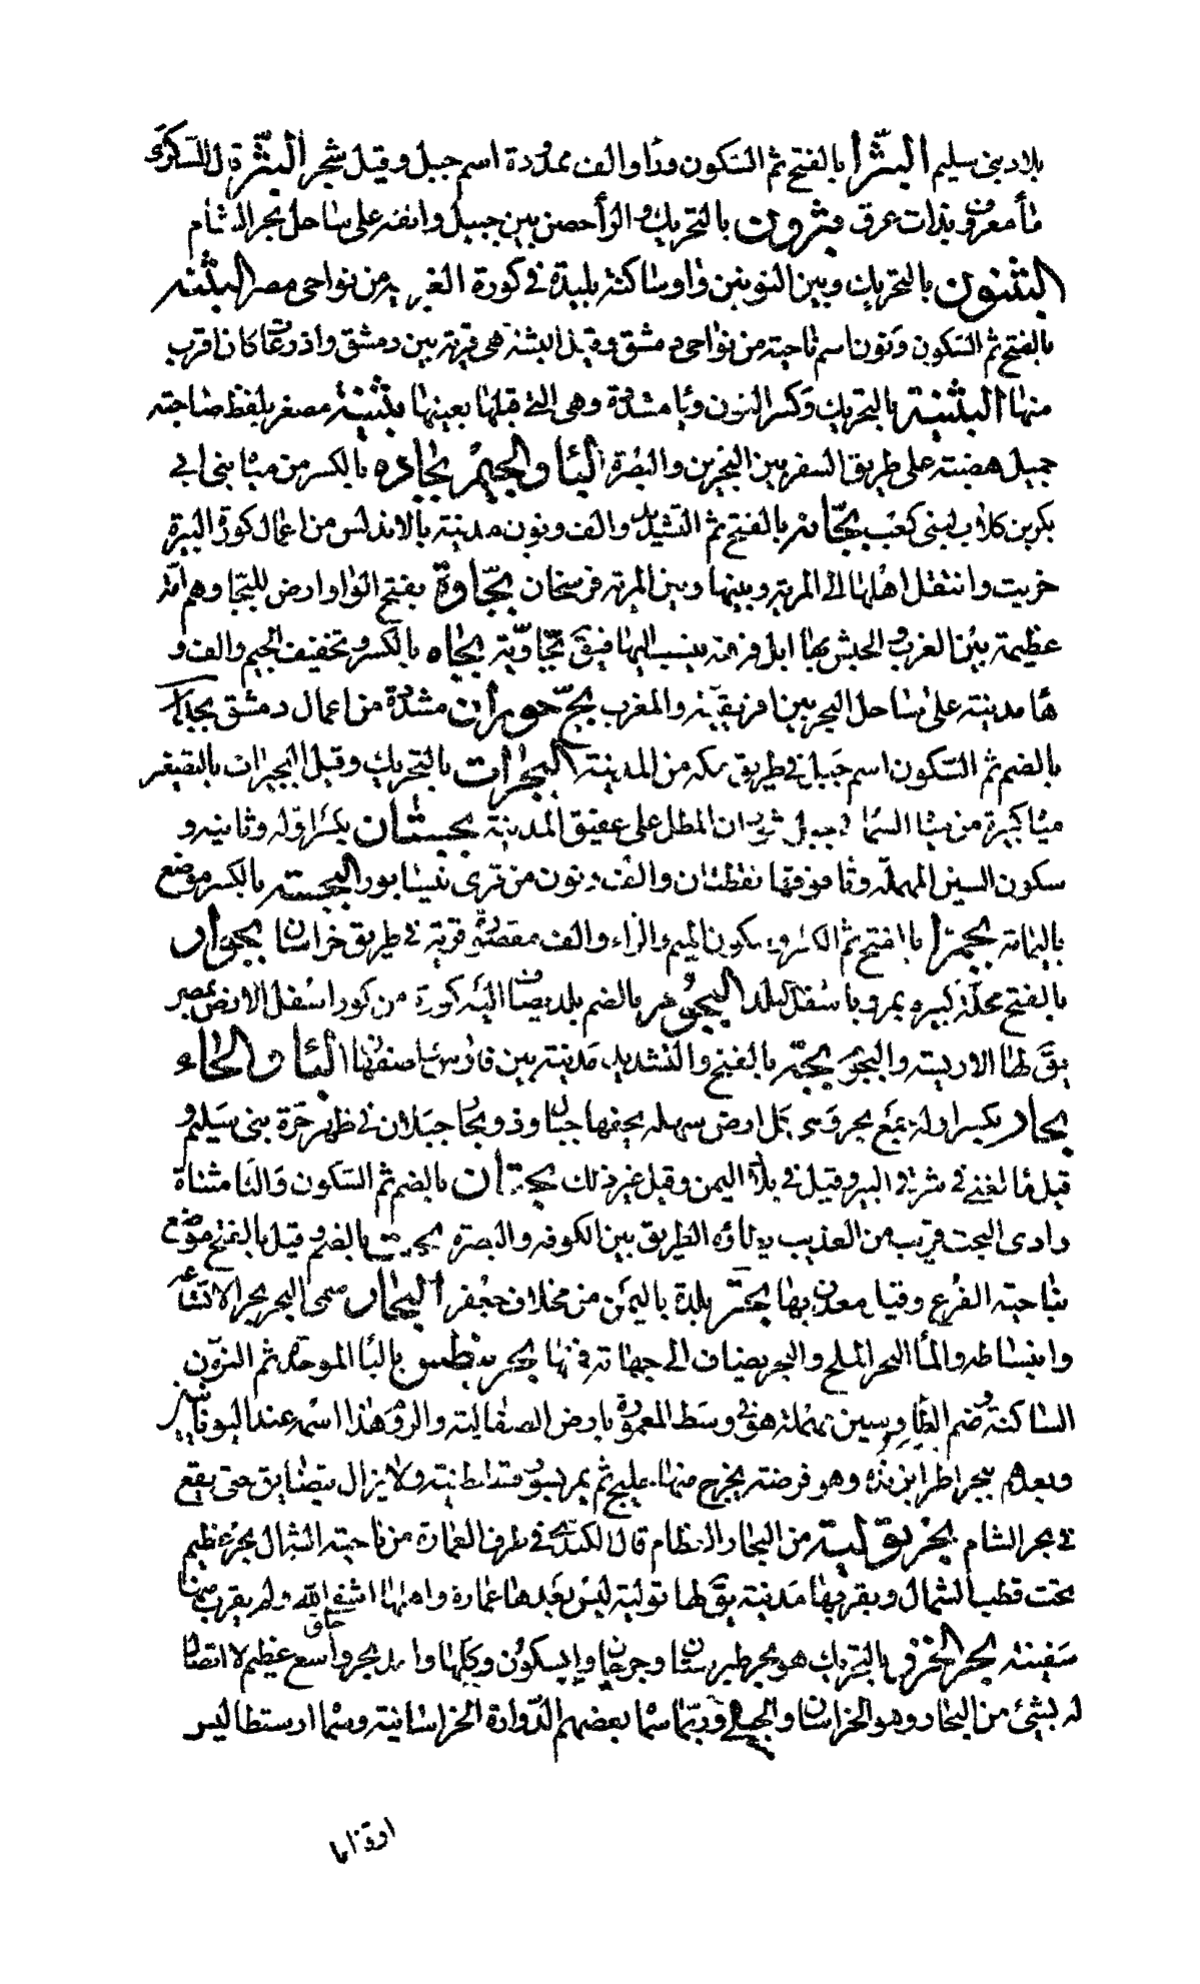 بلاد بنى سليم البثرا بالفتح ثم السكون ورا والف ممدودة اسم جبل وقيل شجر البثر قال السكرى
مأ معروف بذات عرق بثرون بالتحريك والرأ حصن بين جبيل وانفه على ساحل بحر الشام
البثنون بالتحريك وبين النونين واو ساكنة بليدة فى كورة الغربيه من نواحى مصر البثنه
بالفتح ثم السكون ونون اسم ناحيته من نواحى دمشق وقيل البثنه هى قرية بين دمشق واذرعات كان اقرب
منها البثنية بالتحريك وكسر النون ويا مشددة وهى التى قبلها بعينها بثينة مصغر بلفظ صاحبة
جميل هضبته على طريق السفر بين البحرين والبصرة البأ والجيم بجاده بالكسر من مياه بنى ابى
بكر بن كلاب لبنى كعب بجانه بالفتح ثم التشديد والف ونون مدينة بالاندلس من اعمال كورة البيرة
خربت وانتقل اهلها الى المرية وبينها وبين المرية فرسخان بجاوة بفتح الواو ارض للبجا وهم امة
عظيمة بين العرب والحبش بها ابل فرهة ينسب اليها فيق بجاوية بجاه بالكسر وتخفيف الجيم والف و
ها مدينة على ساحل البحر بين افريقية والمغرب بج حوران مشددة من اعمال دمشق
بالضم ثم السكون اسم جبل فى طريق مكه من المدينة البجرات بالتحريك وقيل البجيرات بالتصغير
مياه كبيرة من مياه السما فى جبل شوران المطل على عقيق المدينة بجستان بكسر اوله وثانيه و
سكون السين المهملة وتا فوقها نقطتان والف ونون من قرى نيسابور البجسته بالكسر موضع
باليمامة بجمزا بالفتح ثم الكسر وسكون الميم والزاء والف مقصورة قرية فى طريق خراسان بجوار
بالفتح محلة كبيره بمرو باسفل البلد البجوم بالضم بلد يضاف اليه كورة من كور اسفل الارض بمصر
يق لها الاريسيه والبجوم بجه بالفتح والتشديد مدينة بين فارس واصفهان البأ والحاء
بحار بكسر اوله جمع بحر وهى كل ارض سهله يحفها جبال وذو بحار جبلان فى ظهر حرة بنى سليم و
قيل مأ لغنى فى شرقى النير وقيل فى بلاد اليمن وقيل غير ذلك بحتران بالضم ثم السكون والتا مثناة
وادى البحت قريب من العذيب يطاؤه الطريق بين الكوفه والبصره بالضم وقيل بالفتح موضع
بناحيته الفرع وقيل معدن بها بحتر بلدة باليمن من مخلاف جعفر البحار سمى البحر بحرا لاتساعه
وانبساطه والمأ البحر الملح والبحر يضاف الى جهاته فمنها بحر بنطس بالبا الموحدة ثم النون
الساكنة وضم الطا وسين مهملة هو فى وسط المعمورة بارض الصقالبة والروم وهذا اسمه عند اليونانيين
ويعرف ببحر اطرابزنده وهو فرضته يخرج منها خليج ثم يمر بسور قسطنطنية ولا يزال يتضايق حتى يقع
فى بحر الشام بحر يق له من البحار العظام قال الكندى فى طرف العمارة من ناحيته الشمال بحر عظيم
تحت قطب الشمال وبقربها مدينة يق لها توليه ليس بعدها عمارة واهلها اشقى خلق الله ولم يقرب منها
سفينة بحر الخزر بالتحريك هو بحر طبرستان وجرجان وابسكون وكلها واحد بحر واسع عظيم لا اتصال
له بشئ من البحار وهو الخراسانى والجيلى وربما سما بعضهم الدوارة الخراسانية وسما ارسطاطاليس
ارقانيا